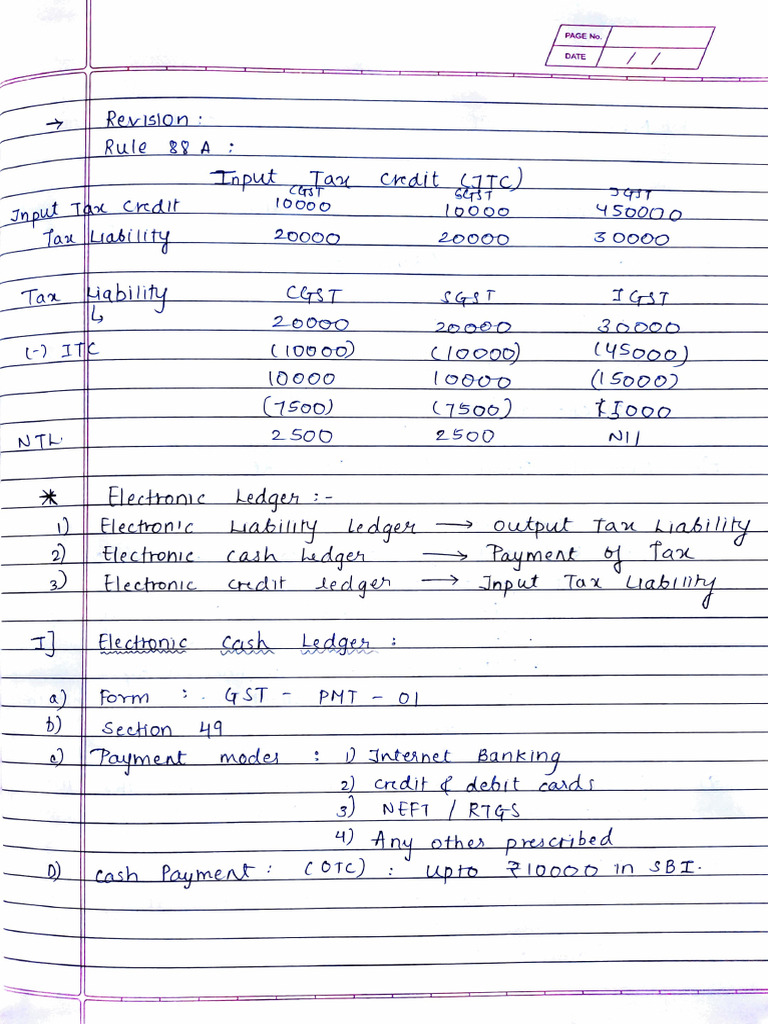 PAGE No.
DATE / /
→ Revision :
Rule 88 A :
Input Tax Credit (ITC)
CGST SGST IGST
Input Tax Credit 10000 10000 450000
Tax Liability 20000 20000 30000
Tax Liability CGST SGST IGST
↳ 20000 20000 30000
(-) ITC (10000) (10000) (45000)
10000 10000 (15000)
(7500) (7500) 15000
NTL. 2500 2500 Nil
* Electronic Ledger :-
1) Electronic Liability ledger → Output Tax Liability
2) Electronic cash Ledger → Payment of Tax
3) Electronic credit ledger → Input Tax Liability
I] Electronic Cash Ledger :
a) Form : GST - PMT - 01
b) Section 49
c) Payment modes : 1) Internet Banking
2) credit & debit cards
3) NEFT / RTGS
4) Any other prescribed
D) cash Payment : (OTC) : Upto ₹10000 in SBI.